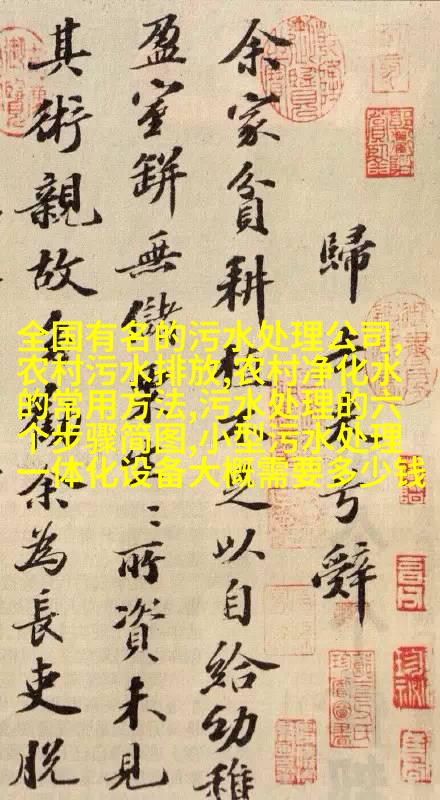 歸去來兮辭
余家貧耕植不足以自給幼稚
盈室缾無儲粟生〻所資未見
其術親故多勸余為長吏脫
全国有名的污水处理公司,
农村污水排放,农村净化水
的常用方法,污水处理的六
个步骤简图,小型污水处理
一体化设备大概需要多少钱